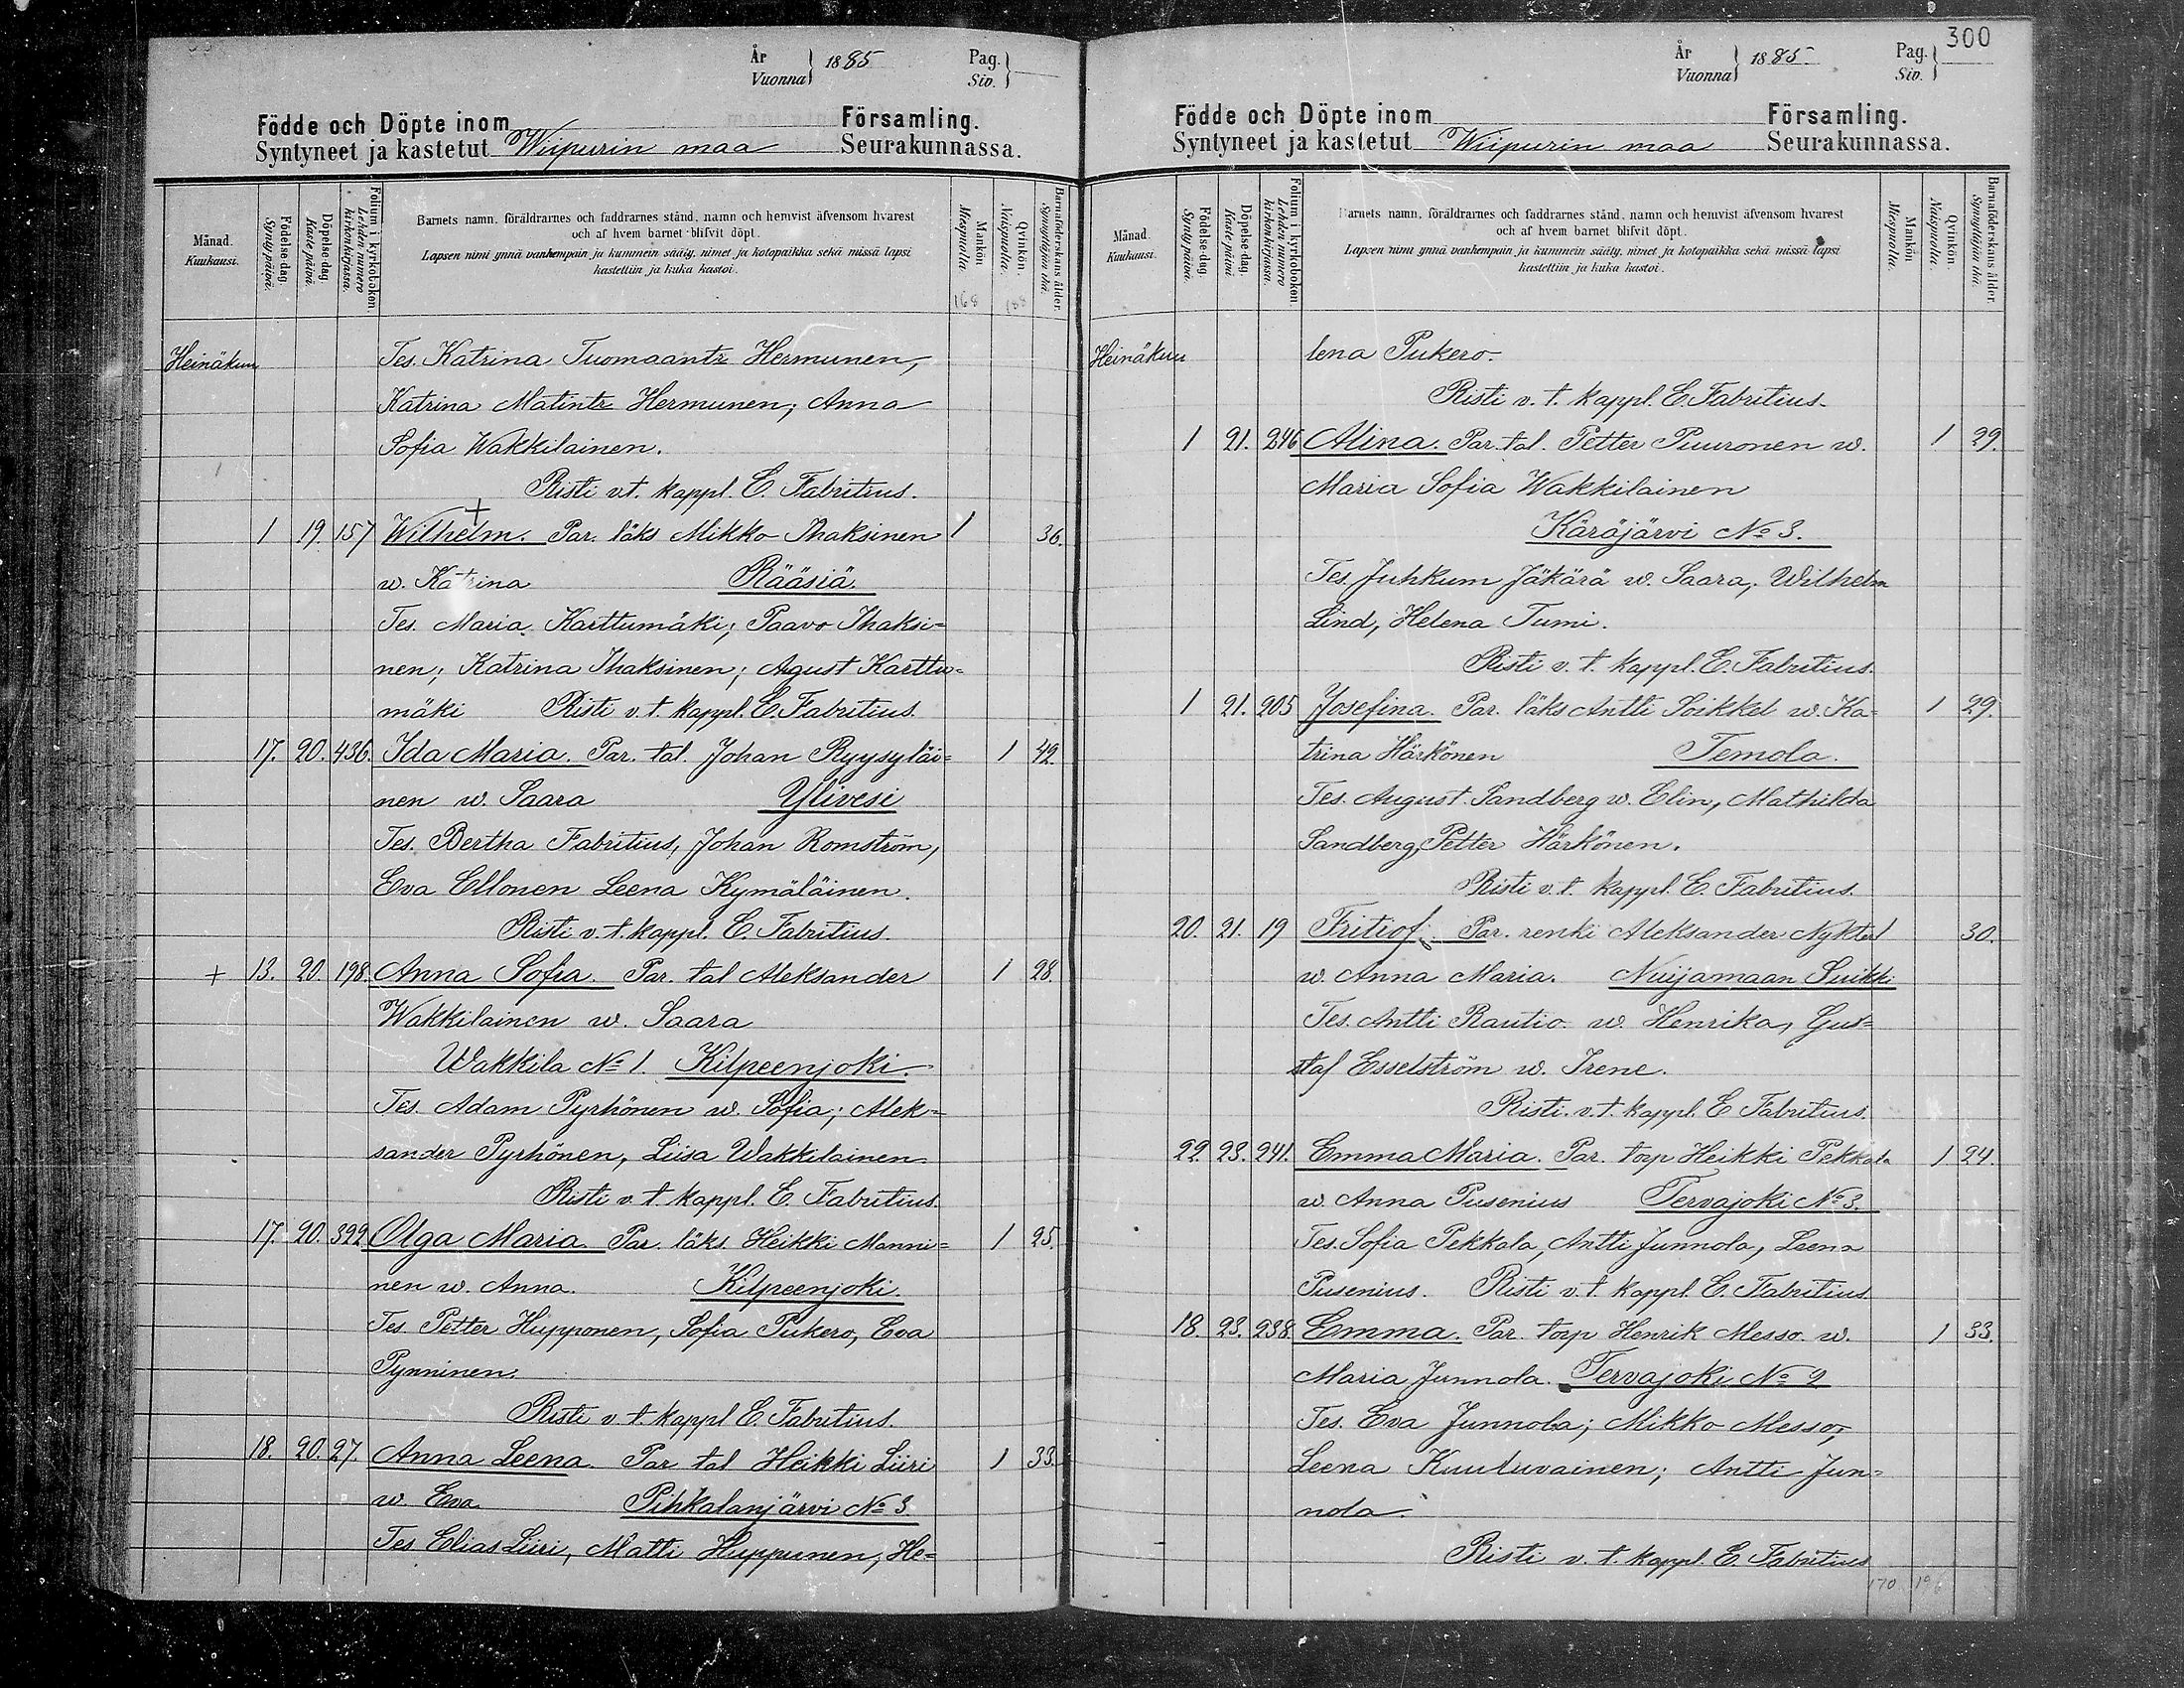 År Vuonna } 1885 Pag. Siv. }
Födde och Döpte inom Församling.
Syntyneet ja kastetut Wiipurin maa Seurakunnassa.
Månad. Kuukausi.
Födelse-dag. Synty päivä.
Döpelse-dag. Kaste päivä.
Folium i kyrkoboken. Lehden numero kirkonkirjassa.
Barnets namn, föräldrarnes och faddrarnes stånd, namn och hemvist äfvensom hvarest
och af hvem barnet blifvit döpt.
Lapsen nimi ynnä vanhempain ja kummein sääty, nimet ja kotopaikka sekä missä lapsi
kastettiin ja kuka kastoi.
Mankön Miespuolia.
Qvinkön. Naispuolia.
Barnaföderskans ålder. Synnyttäjän ikä.
168 188
Heinäkuu Tes. Katrina Tuomaantr Hermunen,
Katrina Matintr Hermunen; Anna
Sofia Wakkilainen.
Risti v.t. kappl. E. Fabritius.
+
1 19. 157 Wilhelm. Par. läks Mikko Ihaksinen 1 36.
w. Katrina Rääsiä.
Tes. Maria Karttumäki; Paavo Ihaksi=
nen; Katrina Ihaksinen; Agust Karttu=
mäki Risti v.t. kappl. E. Fabritius.
17. 20. 436. Ida Maria. Par. tal. Johan Ryysyläi= 1 42.
nen w. Saara Ylivesi
Tes. Bertha Fabritius, Johan Romström,
Eva Ellonen Leena Kymäläinen.
Risti v.t. kappl. E. Fabritius.
+ 13. 20. 198. Anna Sofia. Par. tal Aleksander 1 28.
Wakkilainen w. Saara
Wakkila No 1. Kilpeenjoki.
Tes. Adam Pyrhönen w. Sofia; Alek=
sander Pyrhönen, Liisa Wakkilainen.
Risti v.t. kappl. E. Fabritius.
17. 20. 392. Olga Maria. Par. läks. Heikki Manni= 1 25.
nen w. Anna. Kilpeenjoki.
Tes. Petter Hupponen, Sofia Pukero, Eva
Pynninen.
Risti v.t. kappl E. Fabritius.
18. 20. 27. Anna Leena. Par tal Heikki Liiri 1 33.
w. Eva Pihkalanjärvi No 3.
Tes Elias Liiri, Matti Huppunen, He=
300
År Vuonna } 1885 Pag. Siv. }
Födde och Döpte inom Församling.
Syntyneet ja kastetut Wiipurin maa Seurakunnassa.
Månad. Kuukausi.
Födelse-dag. Synty päivä.
Döpelse-dag. Kaste päivä.
Folium i kyrkoboken. Lehden numero kirkonkirjassa.
Barnets namn, föräldrarnes och faddrarnes stånd, namn och hemvist äfvensom hvarest
och af hvem barnet blifvit döpt.
Lapsen nimi ynnä vanhempain ja kummein sääty, nimet ja kotopaikka sekä missä lapsi
kastettiin ja kuka kastoi.
Mankön Miespuolia.
Qvinkön. Naispuolia.
Barnaföderskans ålder. Synnyttäjän ikä.
Heinäkuu lena Pukero.
Risti v.t. kappl. E. Fabritius.
1 21. 246 Alina. Par. tal. Petter Puuronen w. 1 29.
Maria Sofia Wakkilainen
Käräjärvi No 3.
Tes. Juhkum Jäkärä w. Saara, Wilhelm
Lind, Helena Tumi.
Risti v.t. kappl. E. Fabritius.
1 21. 205 Josefina. Par. läks Antti Soikkel w. Ka= 1 29.
trina Härkönen Temola.
Tes. August. Sandberg w. Elin, Mathilda
Sandberg, Petter Härkönen.
Risti v.t. kappl. E. Fabritius.
20. 21. 19 Fritiof. Par. renki Aleksander Nykter 1 30.
w. Anna Maria. Nuijamaan Suikki
Tes. Antti Rautio w. Henrika, Gus=
staf Esselström w. Irene.
Risti v.t. kappl. E Fabritius.
22. 23. 241. Emma Maria. Par. torp Heikki Pekkala 1 24.
w. Anna Pusenius Tervajoki No 3.
Tes. Sofia Pekkala, Antti Junnola, Leena
Pusenius. Risti v.t. kappl. E. Fabritius.
18. 23. 238. Emma. Par. torp Henrik Messo w. 1 33.
Maria Junnola. Tervajoki No 2
Tes. Eva Junnola; Mikko Messo,
Leena Kuutuvainen; Antti Jun=
nola.
Risti v.t. kappl. E. Fabritius
170 196